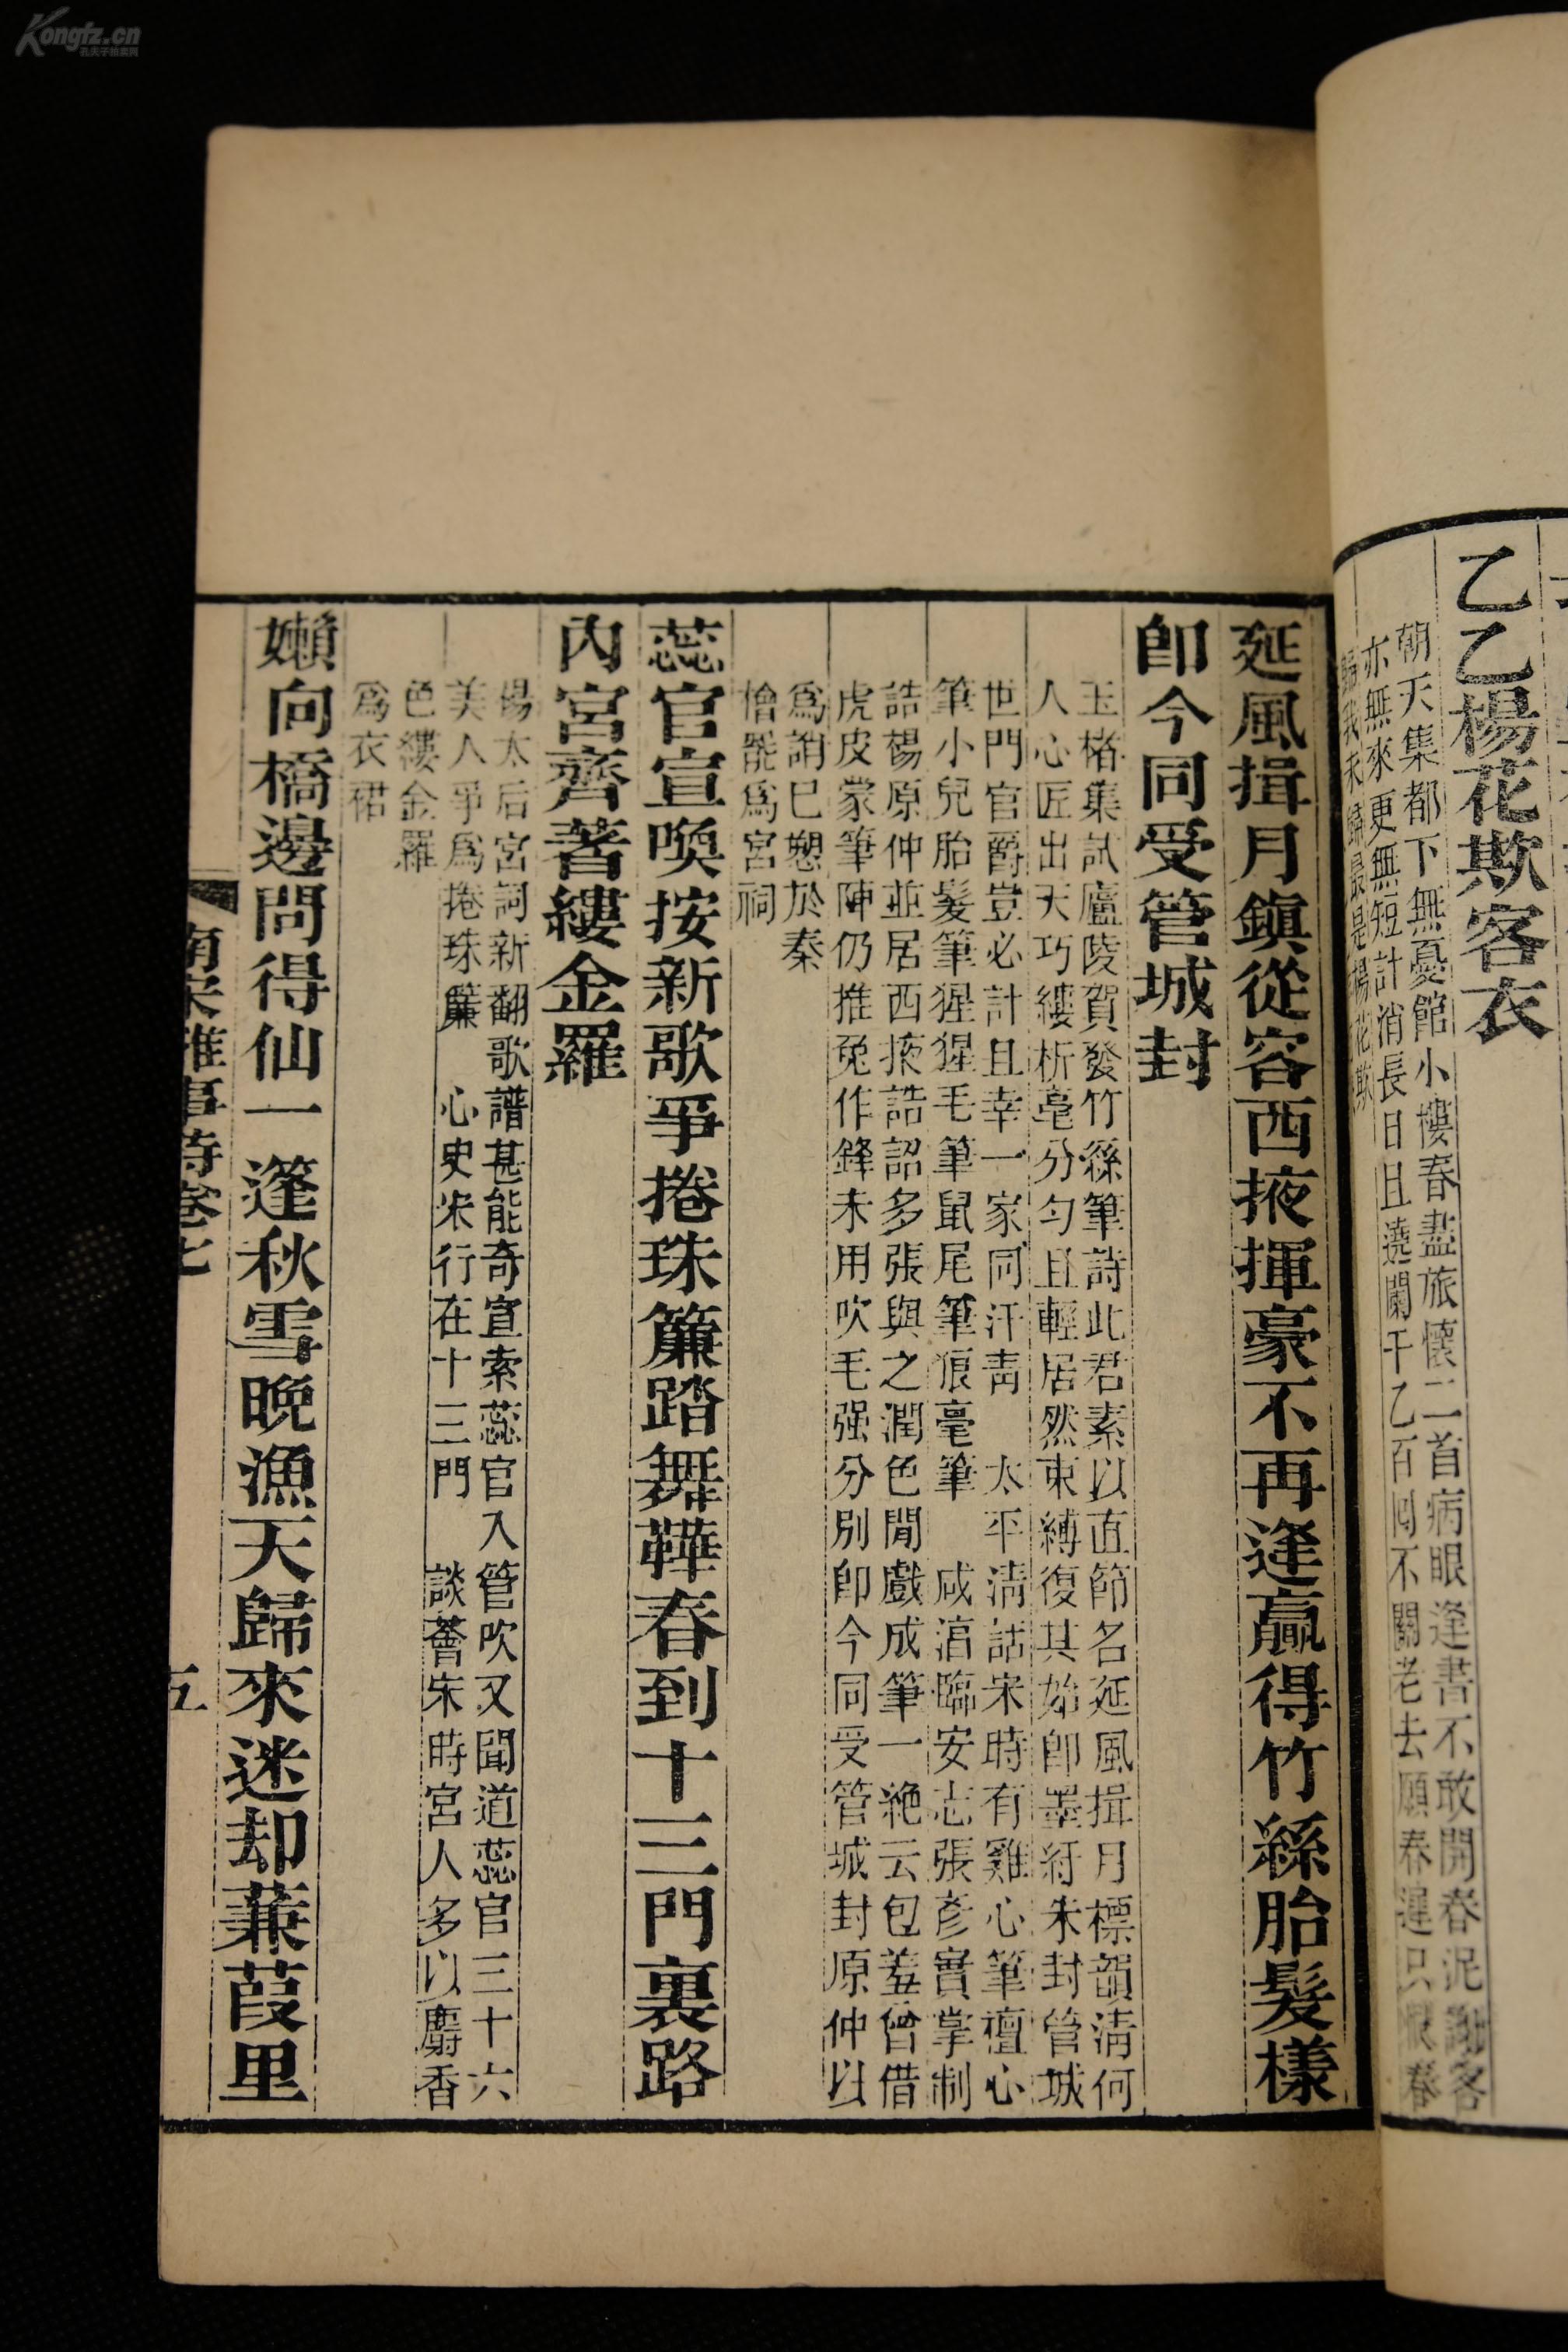 乙乙楊花欺客衣
朝天集都下無憂館小樓春盡旅懷二首病眼逢書不敢開春泥謝客
亦無來更無短計消長日且遶闌干乙百囘不關老去願春遲只恨春
歸我未歸最是楊花欺
延風揖月鎭從容西掖揮豪不再逢贏得竹絲胎髮樣
卽今同受管城封
玉楮集試廬陵賀發竹絲筆詩此君素以直節名延風揖月標韻淸何
人心匠出天巧縷析毫分勻且輕居然束縛復其始卽墨紆朱封管城
世門官爵豈必計且幸一家同汗靑　太平淸話宋時有雞心筆檀心
筆小兒胎髮筆猩猩毛筆鼠尾筆狼毫筆　咸淳臨安志張彥實掌制
誥楊原仲並居西掖誥詔多張與之潤色閒戲成筆一絶云包羞曾借
虎皮蒙筆陣仍推兔作鋒未用吹毛强分別卽今同受管城封原仲以
爲誚已愬於秦
檜罷爲宮祠
蕊官宣喚按新歌爭捲珠簾踏舞鞾春到十三門裏路
內宮齊著縷金羅
楊太后宮詞新翻歌譜甚能奇宣索蕊官入管吹又聞道蕊官三十六
美人爭爲捲珠簾　心史宋行在十三門　談薈宋時宮人多以麝香
色縷金羅
爲衣裙
嬾向橋邊問得仙一篷秋雪晚漁天歸來迷却蒹葭里
南宋雜事詩卷七
五
Kongfz.cn
孔夫子拍卖网